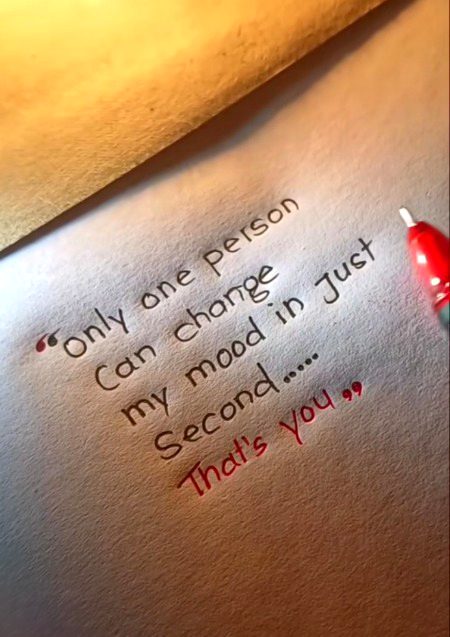 “only one person
Can change
my mood in just
Second.....
That's you”